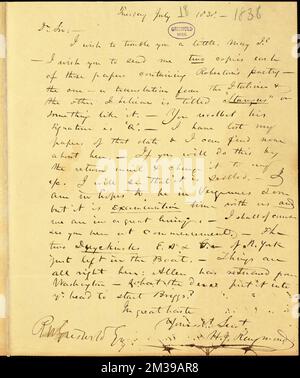 Tuesday July 18 1838. - 1836
GRISWOLD
MSS.
Dr Sir,
I wish to trouble you a little. May I?
- I wish you to send me two copies each
of three papers containing poetry -
the one - a translation from the Italian &
the other I believe is titled "Stanzas" or
something like it. - You recollect his
signature is I have lost my
papers of that date & I can find none
about here. If you will do this by
the return mail & charge it to my
I will be
am in hopes to be in Vergennes soon
but it is examination time with us and
we are in great hurry. - I shall of course
see you here at commencement. The
two Duyckinck's, E. A & Geo of N. York
just left in the Boat. - Things are
all right here: Allen has returned from
Washington - What the deuce put it into
yr head to start Briggs?
In great haste
Yours
H. J. Raymond
R W Griswold Esq.
alamy
Image ID: 2M39AR8
www.alamy.com